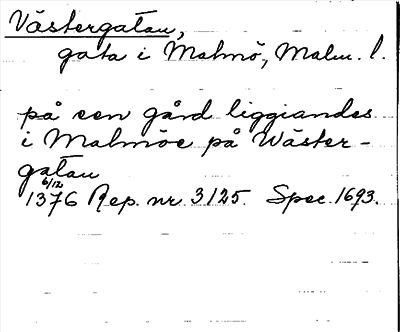 Västergatan,
gata i Malmö, Malm. l.
på een gård liggiandes
i Malmöe på Wäster-
gatan
6/12
1376 Rep. nr. 3125. Spec. 1693.